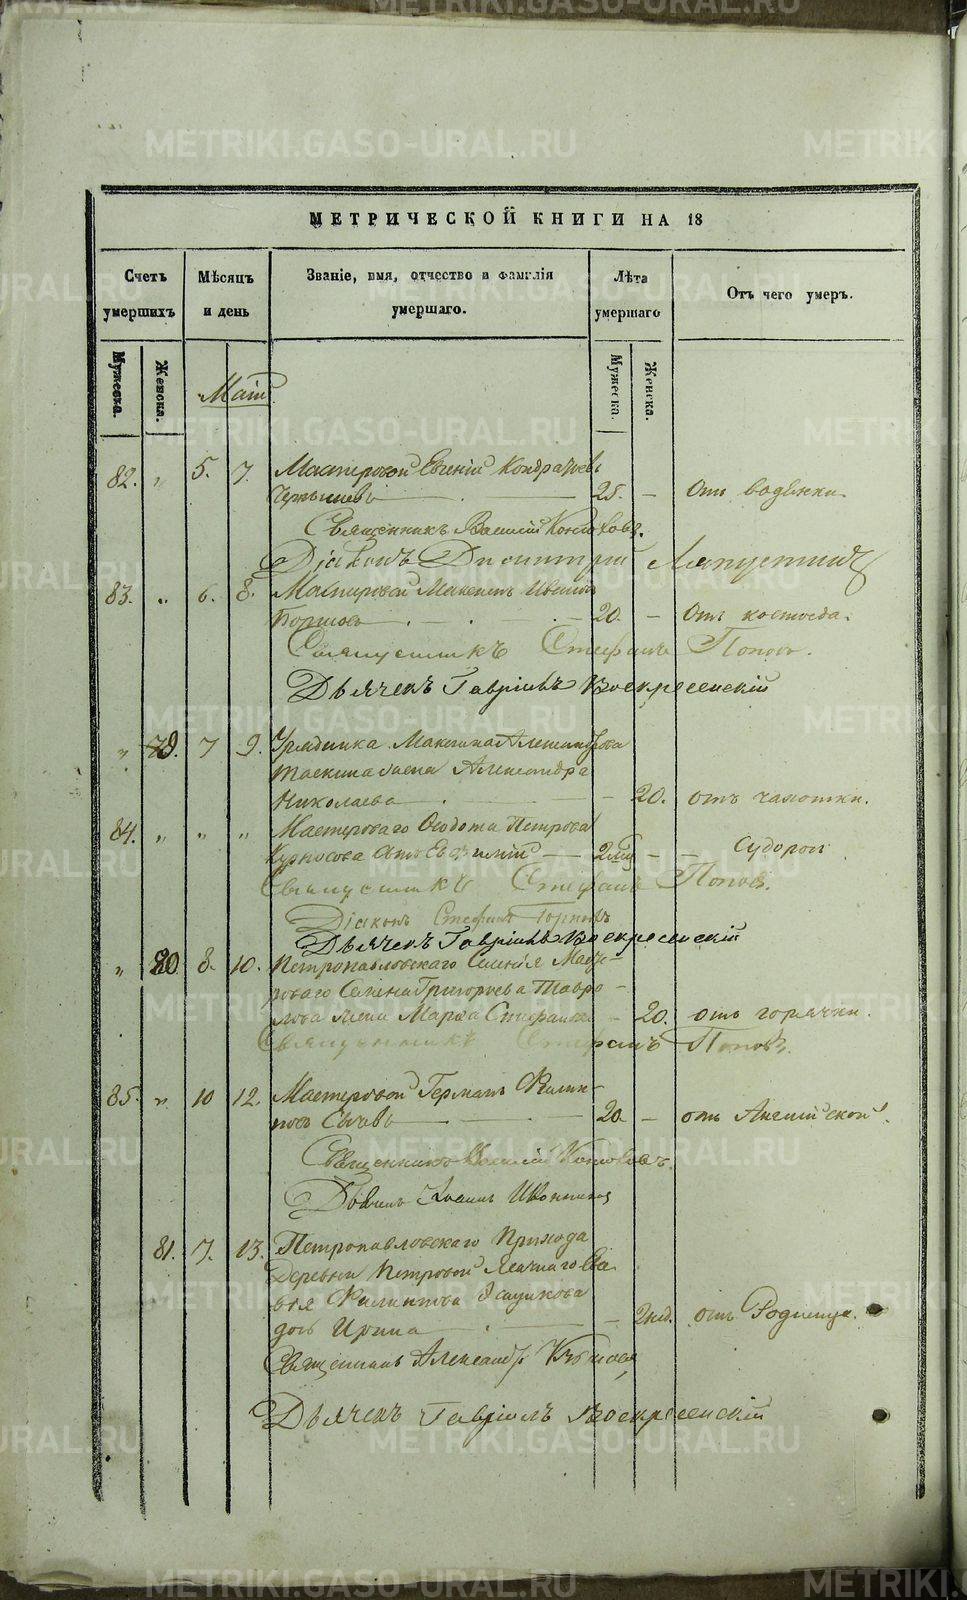 METRIKI.GASO-URAL.RU
МЕТРИЧЕСКОЙ КНИГИ НА 18
Счетъ умершихъ
Мѣсяцъ и день
Званіе, имя, отчество и фамилія умершаго.
Лѣта умершаго
Отъ чего умеръ.
Мужеска.
Женска.
Мужеска.
Женска.
Маій
82. " 5. 7. Мастеровой Евгеній Кондратьевъ
25. — Отъ водянки.
Священникъ Василій
Діаконъ Димитрій Ляпустинъ
83. " 6. 8. Мастеровой Максимъ Ивановъ
20. — Отъ костоеда.
Священникъ Стефанъ Поповъ.
Дьячекъ Гавріилъ Воскресенскій
" 79. 7 9. Урядника Максима Александрова
жена Александра
Николаева — 20. отъ чахотки.
84. " " " Мастероваго Федота Петрова
Курносова сынъ — Судорог
Священникъ Стефанъ Поповъ.
Діаконъ Стефанъ
Дьячекъ Гавріилъ Воскресенскій
" 80. 8. 10. Петропавловскаго Селенія Масте-
роваго Семена Григорьева Гавро-
лова жена Марѳа Стефанова — 20. отъ горячки.
Священникъ Стефанъ Поповъ.
85. " 10 12. Мастеровой Германъ Филип-
повъ — 20. — отъ Англійской.
Священникъ Василій
Дьячекъ Іоаннъ
81. 7. 13. Петропавловскаго Прихода
Деревни Петровой
Филиппова
дочь Ирина — 2 нед. отъ Родимца.
Священникъ Александръ
Дьячекъ Гавріилъ Воскресенскій